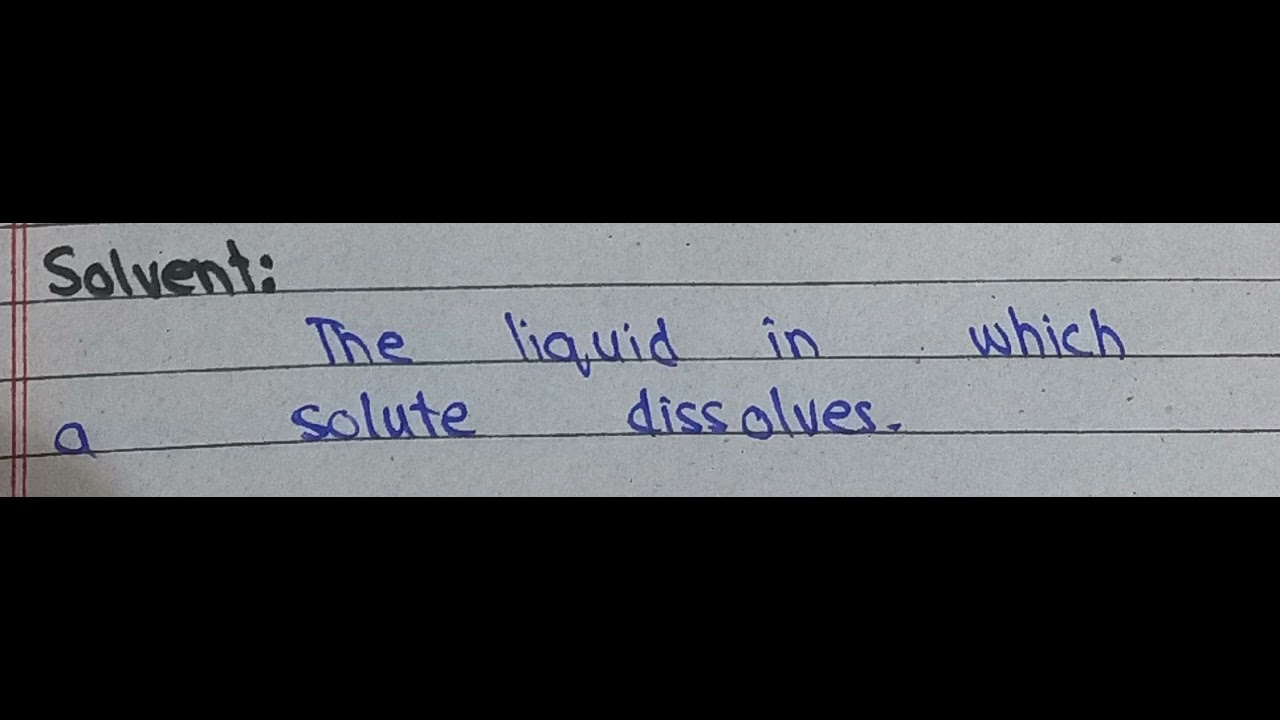 Solvent:
The liquid in which
a solute dissolves.